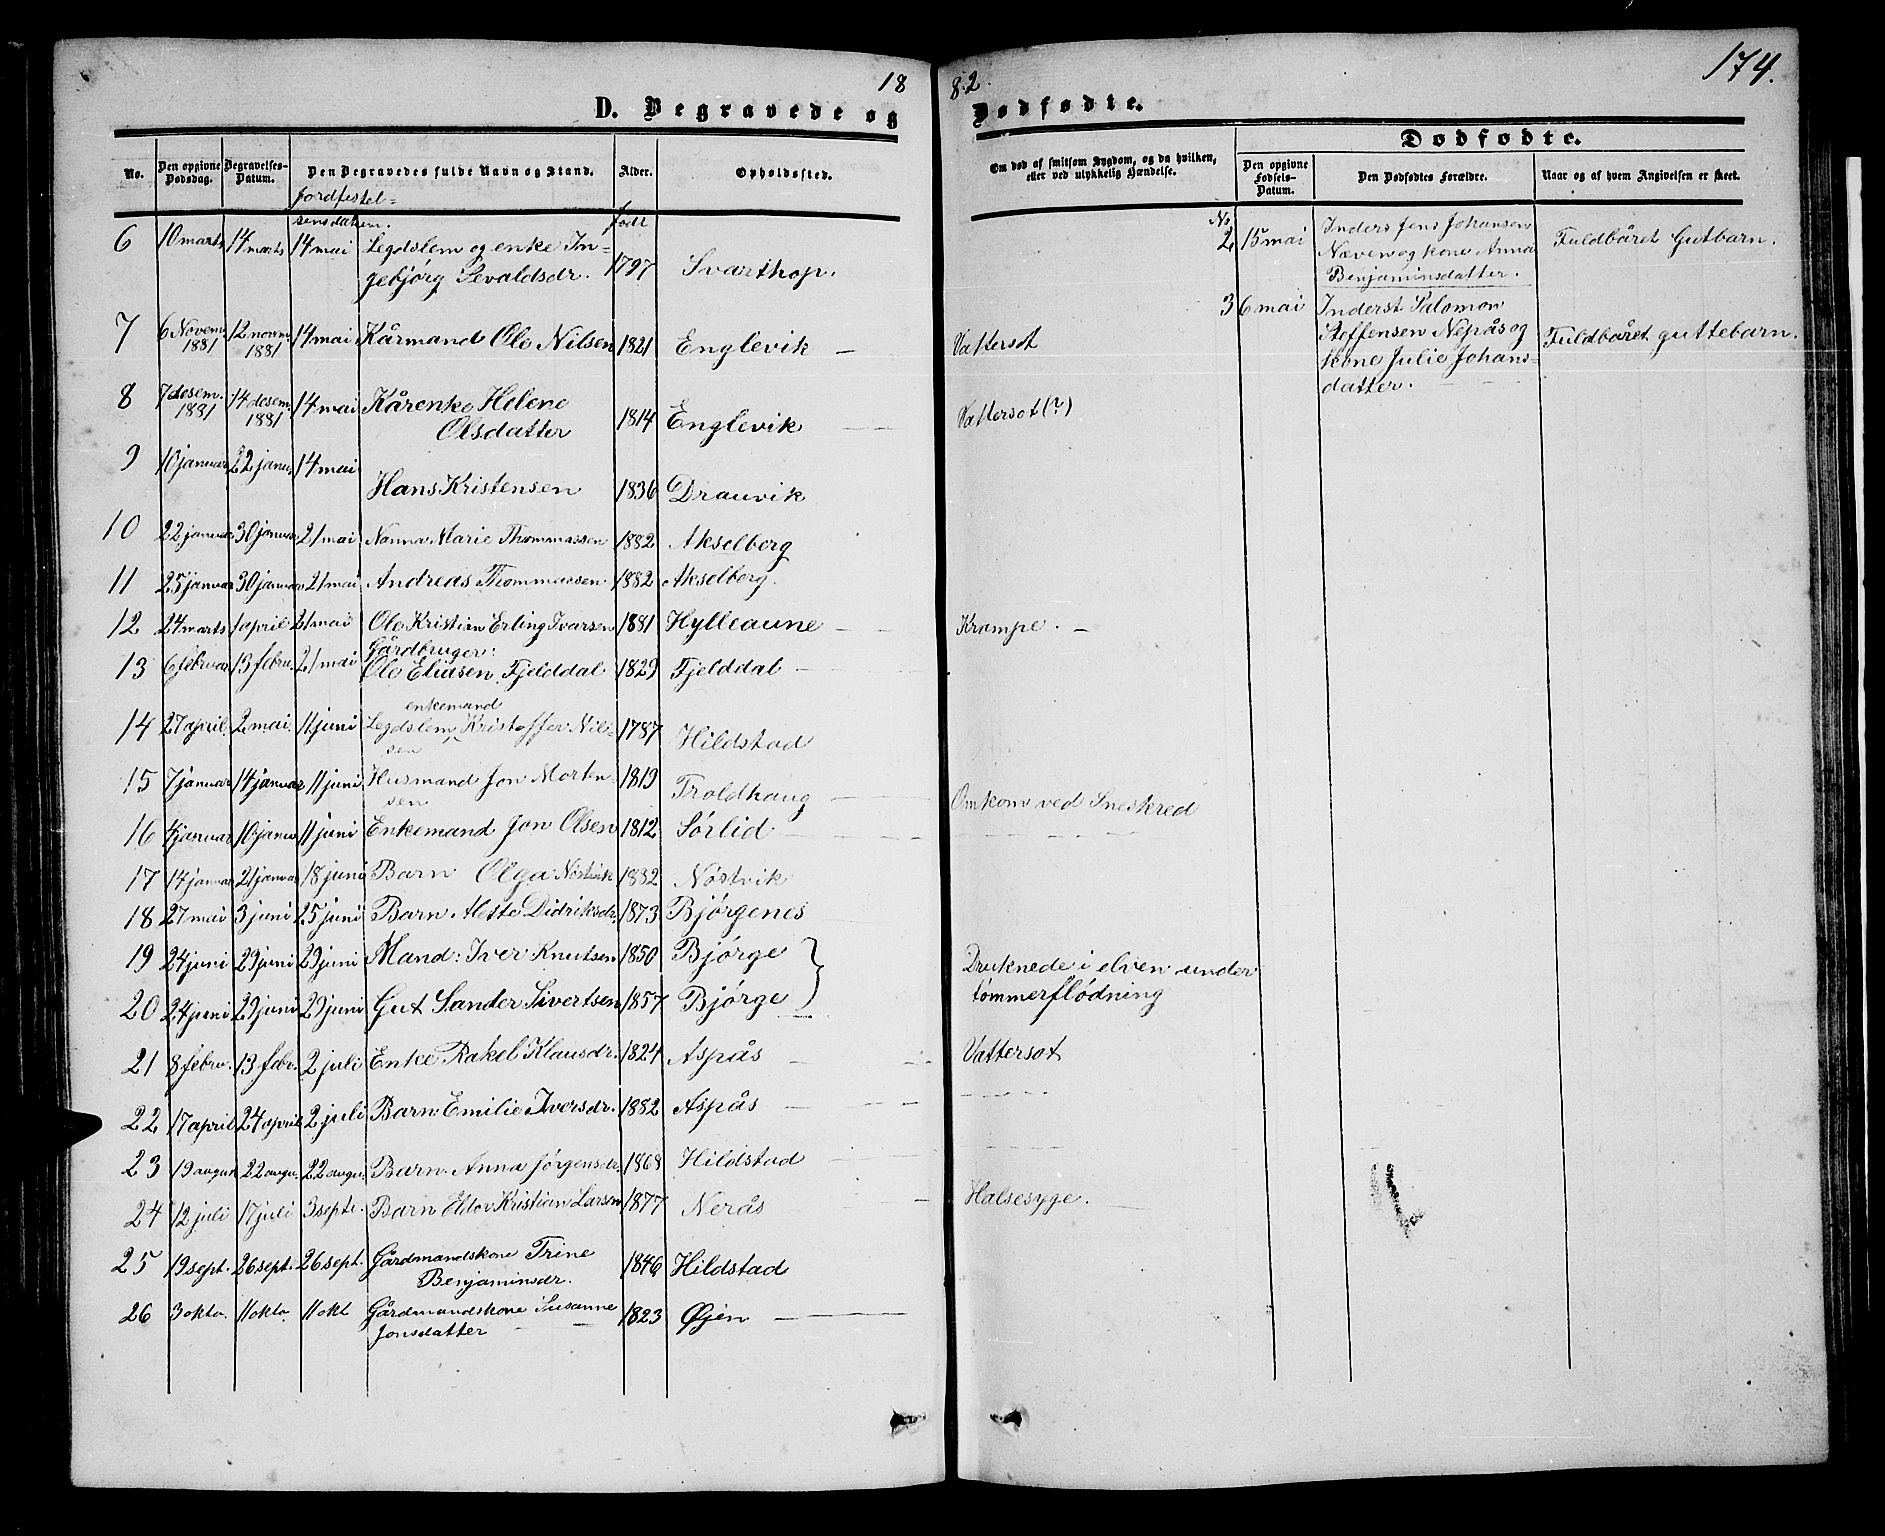 18
82.
174.
D. Begravede og
Dødfødte.
No.
Den opgivne Dødsdag.
Begravelses-Datum.
Den Begravedes fulde Navn og Stand.
Alder.
Opholdssted.
Jordfestel=
sensdatum.
født
Om død af smitsom Sygdom, og da hvilken, eller ved ulykkelig Hændelse.
Dødfødte.
Den opgivne Fødsels-Datum.
Den Dødfødtes Forældre.
Naar og af hvem Angivelsen er skeet.
6 10 marts 14 marts 14 mai Legdslem og enke In=
gebjørg Sevaldsdr. 1797 Svarthop.
7 6 Novem. 1881 12 novm. 1881 14 mai Kårmand Ole Nilsen 1821 Englevik — Vattersot
8 7 desem. 1881 14 desem. 1881 14 mai Kårenke Helene
Olsdatter 1814 Englevik Vattersot (?)
9 10 januar 22 janu. 14 mai
Hans Kristensen 1836 Drauvik
10 22 januar 30 januar 21 mai Nanna Marie Thommassen 1882 Akselberg
11 25 januar 30 januar 21 mai Andreas Thommassen 1882 Akselberg.
12 24 marts 1 april 21 mai Ole Kristian Erling Ivarsen 1881 Hylleaune — Krampe. —
Gårdbruger:
13 6 februar 13 febru. 21 mai Ole Eliasen Fjelddal 1829 Fjelddal —
enkemand
14 27 april. 2 mai. 11 juni Legdslem Kristoffer Nil=
sen 1787 Hildstad
15 7 januar 14 januar 11 juni Husmand Jon Morten=
sen 1819 Troldhaug — Omkom ved Sneskred
16 4 januar 10 janu. 11 juni Enkemand Jon Olsen 1812 Sørlid —
17 14 januar 21 januar 18 juni Barn Olga Nøstvik 1882 Nøstvik
18 27 mai 3 juni 25 juni Barn Mette Didriksdr. 1873 Bjørgenes
19 24 juni 29 juni 29 juni Mand: Iver Knutsen 1850 Bjørge } Druknede i elven under
20 24 juni 29 juni 29 juni Gut Sander Sivertsen 1857 Bjørge tømmerflødning
21 8 febru. 13 febr. 2 juli Enke Rakel Klausdr. 1824 Aspås — Vattersot
22 17 april 24 april 2 juli Barn Emilie Iversdr. 1882 Aspås —
23 19 augu. 22 augu. 22 augu. Barn. Anna Jørgensdr. 1868 Hildstad
24 12 juli 17 juli 3 septe. Barn Eldor Kristian Larsen 1877 Nerås — Halsesyge.
25 19 sept. 26 sept. 26 sept. Gårdmandskone Trine
Benjaminsdr. 1846 Hildstad
26 3 okto. 11 okto. 11 okt Gårdmandskone Susanne
Jonsdatter 1823 Øjen —
No
2 15 mai Inders Jens Johansen
Næven og kone Anna
Benjaminsdatter.
Fuldbåret Gutbarn.
3 6 mai Inderst Salomon
Steffensen Nepås og
kone Julie Johans=
datter.
Fuldbåret guttebarn.